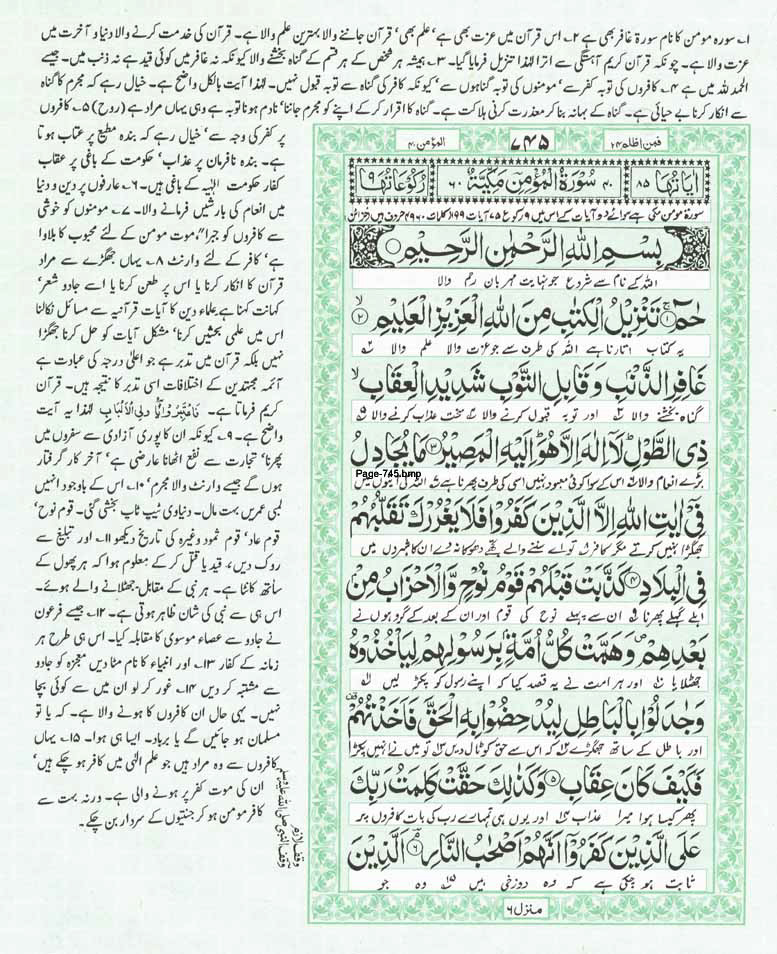 ۱؎ سورہ مومن کا نام سورۃ غافر بھی ہے ۲؎ اس قرآن میں عزت بھی ہے، علم بھی، قرآن جاننے والا بہترین علم والا ہے۔ قرآن کی خدمت کرنے والا دنیا و آخرت میں
عزت والا ہے۔ چونکہ قرآن کریم آہستگی سے اترا لہٰذا تنزیل فرمایا گیا۔ ۳؎ ہمیشہ ہر شخص کے ہر قسم کے گناہ بخشنے والا کیونکہ نہ غافر میں کوئی قید ہے نہ ذنب میں۔ جیسے
الحمد للہ میں ہے ۴؎ کافروں کی توبہ کفر سے، مومنوں کی توبہ گناہوں سے، کیونکہ کافر کی گناہ سے توبہ قبول نہیں۔ لہٰذا آیت بالکل واضح ہے۔ خیال رہے کہ مجرم کا گناہ
سے انکار کرنا بے حیائی ہے۔ گناہ کے بہانہ بنا کر معذرت کرنی ہلاکت ہے۔ گناہ کا اقرار کر کے اپنے کو مجرم جاننا، نادم ہونا توبہ ہے وہی یہاں مراد ہے (روح) ۵؎ کافروں
پر کفر کی وجہ سے، خیال رہے کہ بندہ مطیع پر عتاب ہوتا
ہے۔ بندہ نافرمان پر عذاب، حکومت کے باغی پر عقاب
کفار حکومت الٰہیہ کے باغی ہیں۔ ۶؎ عارفوں پر دین و دنیا
میں انعام کی بارشیں فرمانے والا۔ ۷؎ مومنوں کو خوشی
سے کافروں کو جبرا، موت مومن کے لئے محبوب کا بلاوا
ہے، کافر کے لئے وارنٹ ۸؎ یہاں جھگڑے سے مراد
قرآن کا انکار کرنا یا اس پر طعن کرنا یا اسے جادو شعر،
کہانت کہنا ہے علماء دین کا آیات قرآنیہ سے مسائل نکالنا
اس میں علمی بحثیں کرنا، مشکل آیات کو حل کرنا جھگڑا
نہیں بلکہ قرآن میں تدبر ہے جو اعلیٰ درجہ کی عبادت ہے
آئمہ مجتہدین کے اختلافات اسی تدبر کا نتیجہ ہیں۔ قرآن
کریم فرماتا ہے۔ لہٰذا یہ آیت
واضح ہے۔ ۹؎ کیونکہ ان کا پوری آزادی سے سفروں میں
پھرنا، تجارت سے نفع اٹھانا عارضی ہے، آخر کار گرفتار
ہوں گے جیسے وارنٹ والا مجرم، ۱۰؎ اس کے باوجود انہیں
لمبی عمریں بہت مال۔ دنیاوی ٹیپ ٹاپ بخشی گئی۔ قوم نوح،
قوم عاد، قوم ثمود وغیرہ کی تاریخ دیکھو ۱۱؎ اور تبلیغ سے
روک دیں، قید یا قتل کر کے معلوم ہوا کہ ہر پھول کے
ساتھ کانٹا ہے۔ ہر نبی کے مقابل جھٹلانے والے ہوئے۔
اس ہی سے نبی کی شان ظاہر ہوتی ہے۔ ۱۲؎ جیسے فرعون
نے جادو سے عصاء موسوی کا مقابلہ کیا۔ اس ہی طرح ہر
زمانہ کے کفار ۱۳؎ اور انبیاء کا نام مٹا دیں معجزہ کو جادو
سے مشتبہ کر دیں ۱۴؎ غور کر لو ان میں سے کوئی بچا
نہیں۔ یہی حال ان کافروں کا ہونے والا ہے۔ کہ یا تو
مسلمان ہو جائیں گے یا برباد۔ ایسا ہی ہوا۔ ۱۵؎ یہاں
کافروں سے وہ مراد ہیں جو علم الٰہی میں کافر ہو چکے ہیں،
ان کی موت کفر پر ہونے والی ہے۔ ورنہ بہت سے
کافر مومن ہو کر جنتیوں کے سردار بن چکے۔
وقف لازم
وقف النبی صلی اللہ علیہ وسلم
فمن اظلم ۲۴ ۷۴۵ المؤمن ۴۰
اٰیَاتُهَا ۸۵ ۴۰ سُوْرَةُ الْمُؤْمِنِ مَكِّيَّةٌ ۶۰ رُكُوْعَاتُهَا ۹
سورۃ مومن مکی ہے سوائے دو آیات کے اس میں ۹ رکوع ۸۵ آیات ۱۱۹۹ کلمات ۴۹۶۰ حروف ہیں (خزائن)
بِسْمِ اللّٰهِ الرَّحْمٰنِ الرَّحِيْمِ
اللہ کے نام سے شروع جو نہایت مہربان رحم والا
حٰمٓ ۚ﴿۱﴾ تَنْزِيْلُ الْكِتٰبِ مِنَ اللّٰهِ الْعَزِيْزِ الْعَلِيْمِ ۙ﴿۲﴾
یہ کتاب اتارنا ہے اللہ کی طرف سے جو عزت والا علم والا ۲؎
غَافِرِ الذَّنْۢبِ وَ قَابِلِ التَّوْبِ شَدِيْدِ الْعِقَابِ ۙ
گناہ بخشنے والا ۳؎ اور توبہ قبول کرنے والا ۴؎ سخت عذاب کرنے والا ۵؎
ذِی الطَّوْلِ ؕ لَاۤ اِلٰهَ اِلَّا هُوَ ؕ اِلَيْهِ الْمَصِيْرُ ﴿۳﴾ مَا يُجَادِلُ
Page-745.bmp
بڑے انعام والا ۶؎ اس کے سوا کوئی معبود نہیں اسی کی طرف پھرنا ہے ۷؎ اللہ کی آیتوں میں
فِیْۤ اٰيٰتِ اللّٰهِ اِلَّا الَّذِيْنَ كَفَرُوْا فَلَا يَغْرُرْكَ تَقَلُّبُهُمْ
جھگڑا نہیں کرتے مگر کافر ۸؎ تو اے سننے والے تجھے دھوکا نہ دے ان کا شہروں میں
فِی الْبِلَادِ ﴿۴﴾ كَذَّبَتْ قَبْلَهُمْ قَوْمُ نُوْحٍ وَّ الْاَحْزَابُ مِنْۢ
اہلے گہلے پھرنا ۹؎ ان سے پہلے نوح کی قوم اور ان کے بعد کے گروہوں نے
بَعْدِهِمْ ۪ وَ هَمَّتْ كُلُّ اُمَّةٍۭ بِرَسُوْلِهِمْ لِيَاْخُذُوْهُ
جھٹلایا ۱۰؎ اور ہر امت نے یہ قصد کیا کہ اپنے رسول کو پکڑ لیں ۱۱؎
وَ جٰدَلُوْا بِالْبَاطِلِ لِيُدْحِضُوْا بِهِ الْحَقَّ فَاَخَذْتُهُمْ
اور باطل کے ساتھ جھگڑے ۱۲؎ کہ اس سے حق کو ٹال دیں ۱۳؎ تو میں نے انہیں پکڑا
فَكَيْفَ كَانَ عِقَابِ ﴿۵﴾ وَ كَذٰلِكَ حَقَّتْ كَلِمَتُ رَبِّكَ
پھر کیسا ہوا میرا عذاب ۱۴؎ اور یوں ہی تمہارے رب کی بات کافروں پر
عَلَی الَّذِيْنَ كَفَرُوْۤا اَنَّهُمْ اَصْحٰبُ النَّارِ ۘ﴿۶﴾ اَلَّذِيْنَ
ثابت ہو چکی ہے کہ وہ دوزخی ہیں ۱۵؎ وہ جو
منزل ۶